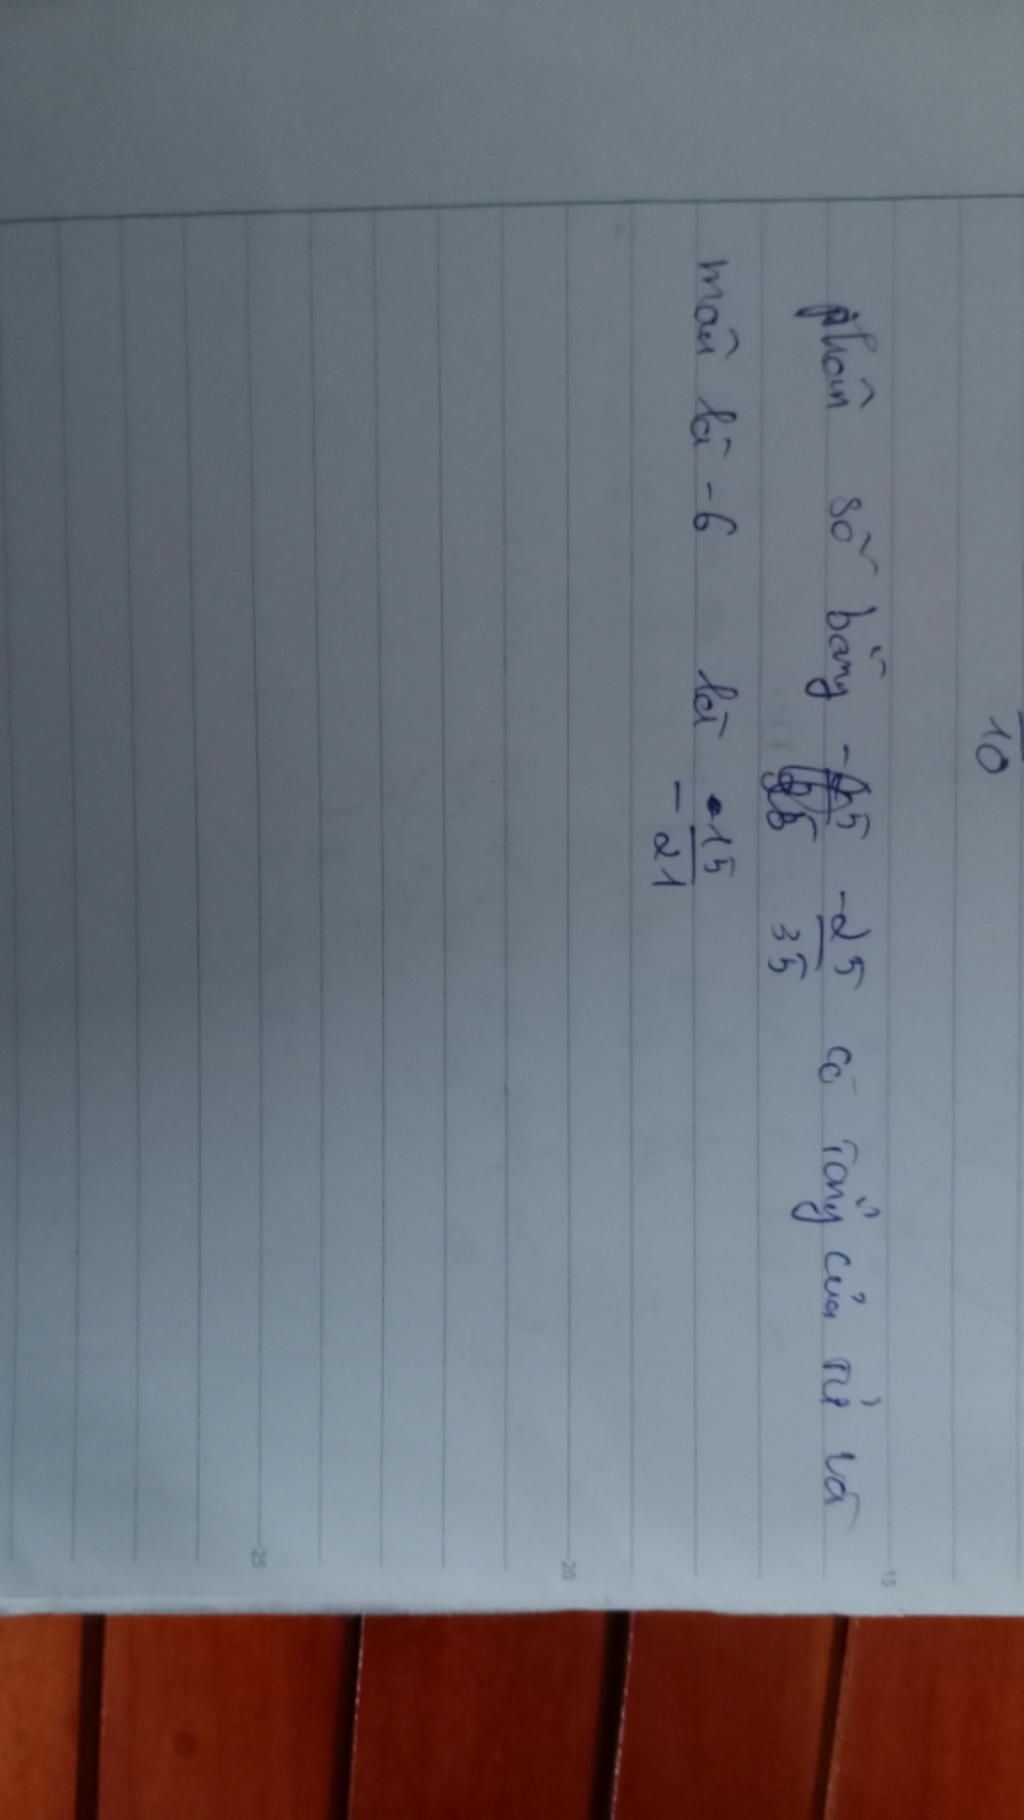 10
phân số bằng -25/35 có tổng của tử và
mẫu là -6 là 15/-21
15
20
25